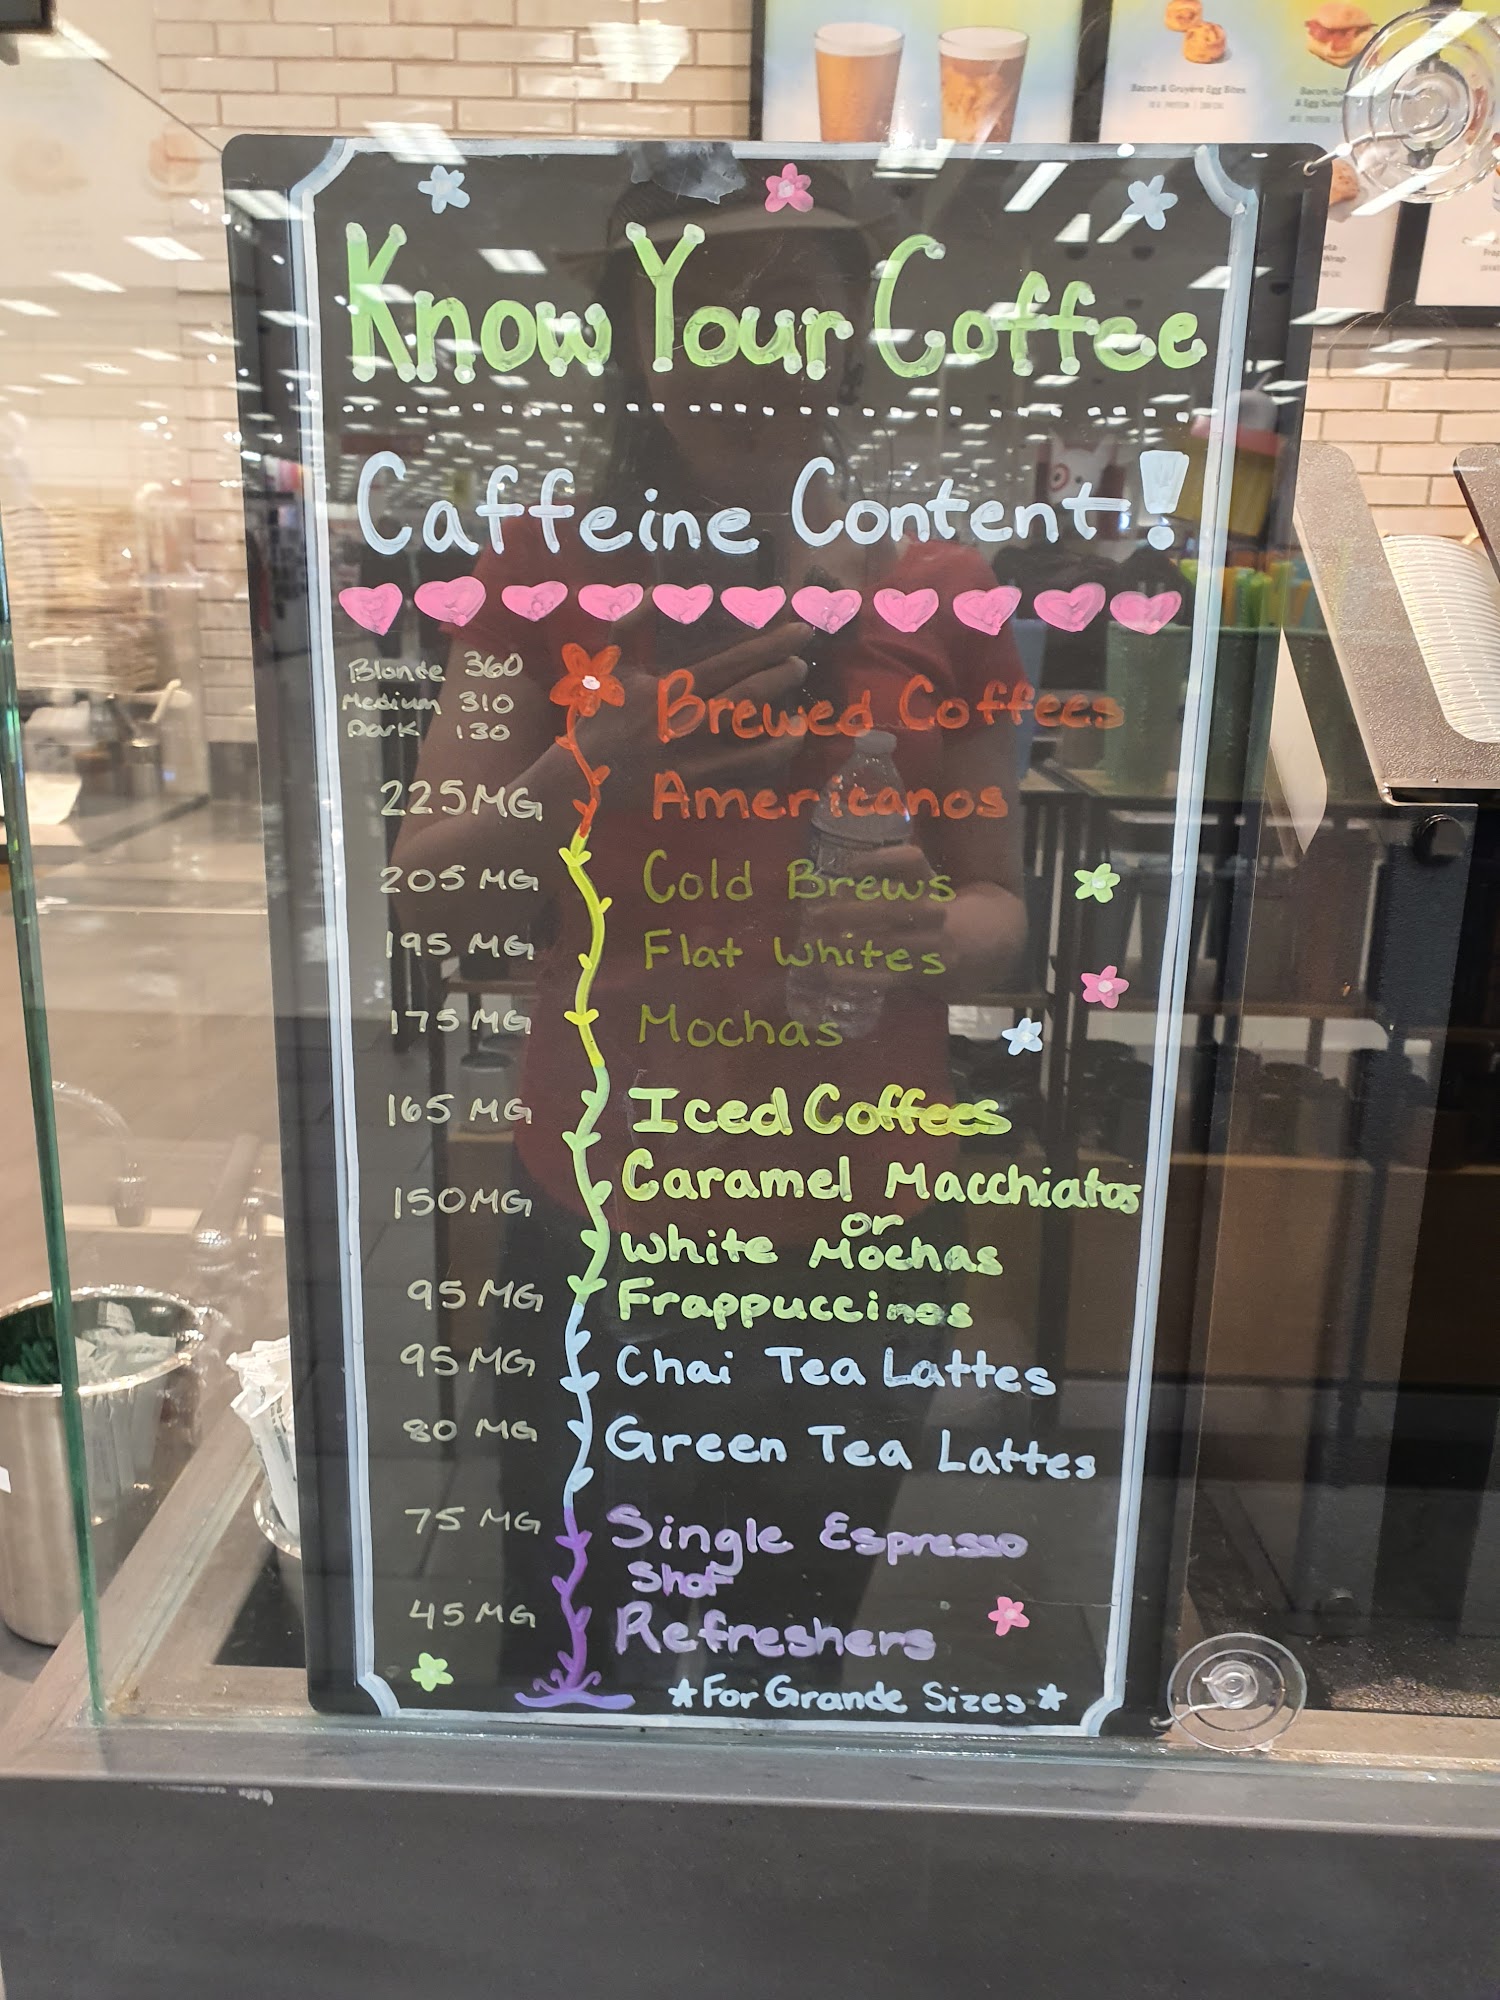 Bacon & Gruyère Egg Bites
Know Your Coffee
Caffeine Content!
Blonde 360
Medium 310
Dark 130
Brewed Coffees
225MG Americanos
205 MG Cold Brews
195 MG Flat Whites
175 MG Mochas
165 MG Iced Coffees
150MG Caramel Macchiatos
or
White Mochas
95 MG Frappuccinos
95 MG Chai Tea Lattes
80 MG Green Tea Lattes
75 MG Single Espresso
Shot
45 MG Refreshers
*For Grande Sizes*